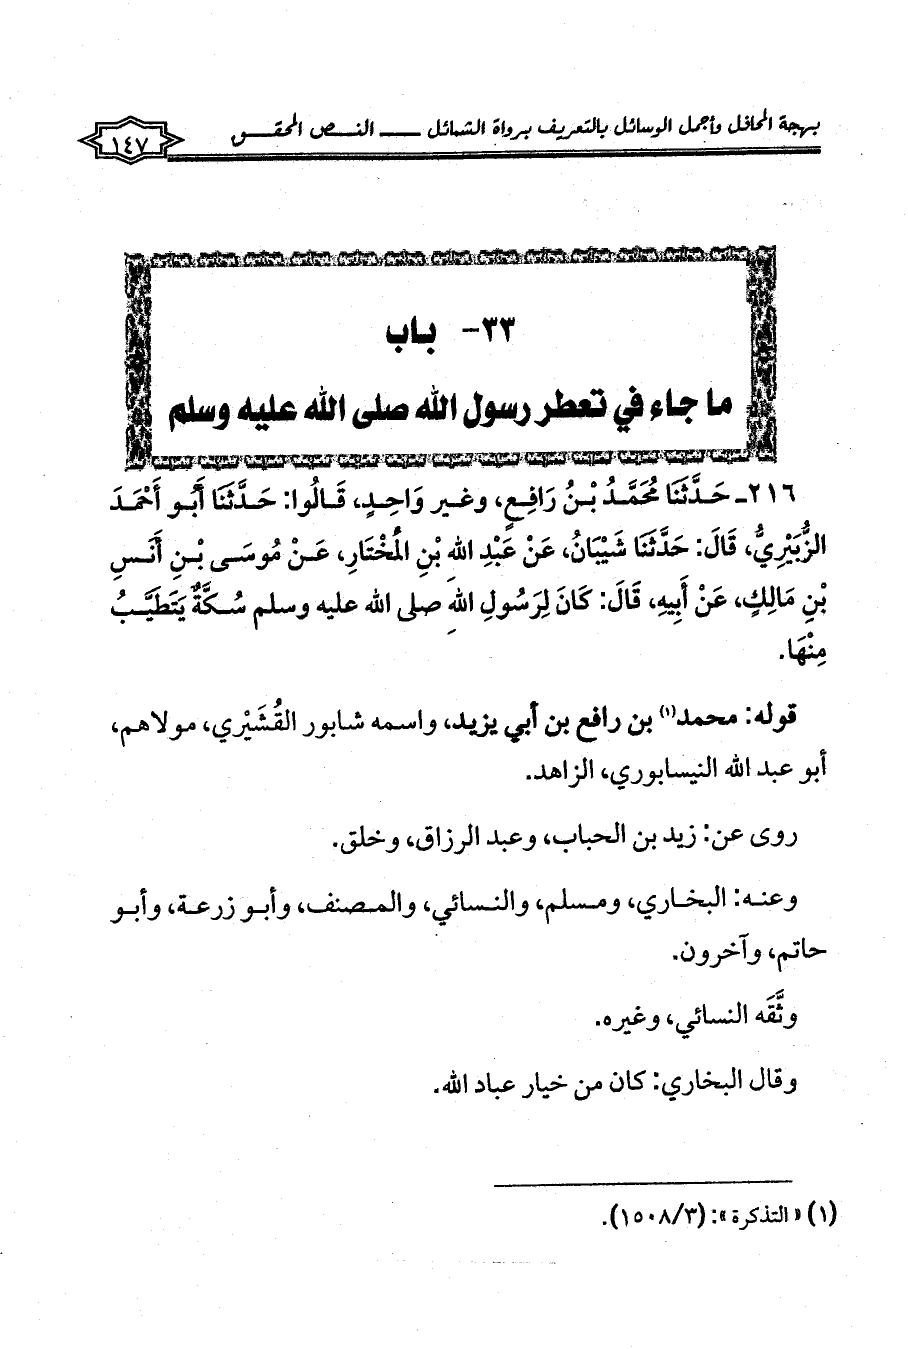 بهجة المحافل وأجمل الوسائل بالتعريف برواة الشمائل ـــــ النـص المحقـق
١٤٧
٣٣- باب
ما جاء في تعطر رسول الله صلى الله عليه وسلم
٢١٦ـ حَدَّثَنَا مُحَمَّدُ بْنُ رَافِعٍ، وغير وَاحِدٍ، قَالُوا: حَدَّثَنَا أَبُو أَحْمَدَ
الزُّبَيْرِيُّ، قَالَ: حَدَّثَنَا شَيْبَانُ، عَنْ عَبْدِ اللهِ بْنِ المُخْتَارِ، عَنْ مُوسَى بْنِ أَنَسِ
بْنِ مَالِكٍ، عَنْ أَبِيهِ، قَالَ: كَانَ لِرَسُولِ اللهِ صلى الله عليه وسلم سُكَّةٌ يَتَطَيَّبُ
مِنْهَا.
قوله: محمد(١) بن رافع بن أبي يزيد، واسمه شابور القُشَيْري، مولاهم،
أبو عبد الله النيسابوري، الزاهد.
روى عن: زيد بن الحباب، وعبد الرزاق، وخلق.
وعنه: البخاري، ومسلم، والنسائي، والمصنف، وأبو زرعة، وأبو
حاتم، وآخرون.
وثَّقَه النسائي، وغيره.
وقال البخاري: كان من خيار عباد الله.
(١) «التذكرة»: (١٥٠٨/٣).